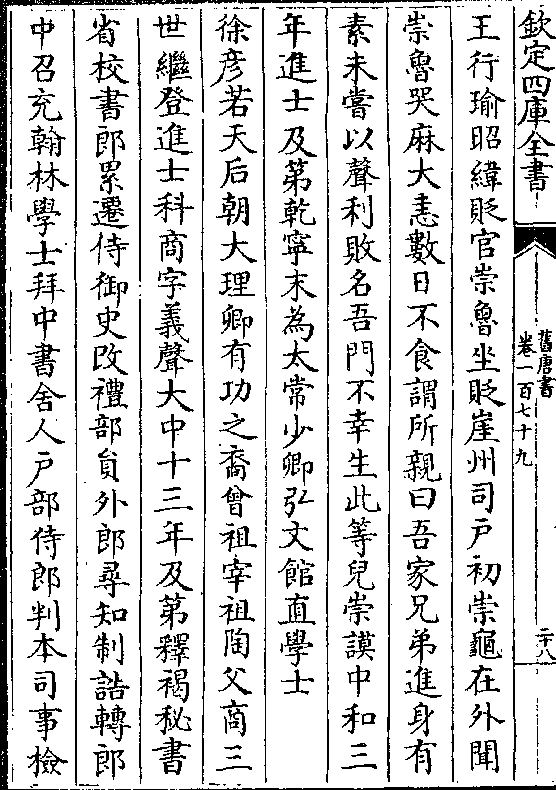 欽定四庫全書
舊唐書
卷一百七十九
二十八
王行瑜昭緯貶官崇魯坐貶崖州司戸初崇龜在外聞
崇魯哭麻大恚數日不食謂所親曰吾家兄弟進身有
素未嘗以聲利敗名吾門不幸生此等兒崇謨中和三
年進士及第乾寧末為太常少卿弘文館直學士
徐彥若天后朝大理卿有功之裔曾祖宰祖陶父商三
世繼登進士科商字義聲大中十三年及第釋褐秘書
省校書郎累遷侍御史改禮部貟外郎尋知制誥轉郎
中召充翰林學士拜中書舍人戸部侍郎判本司事檢